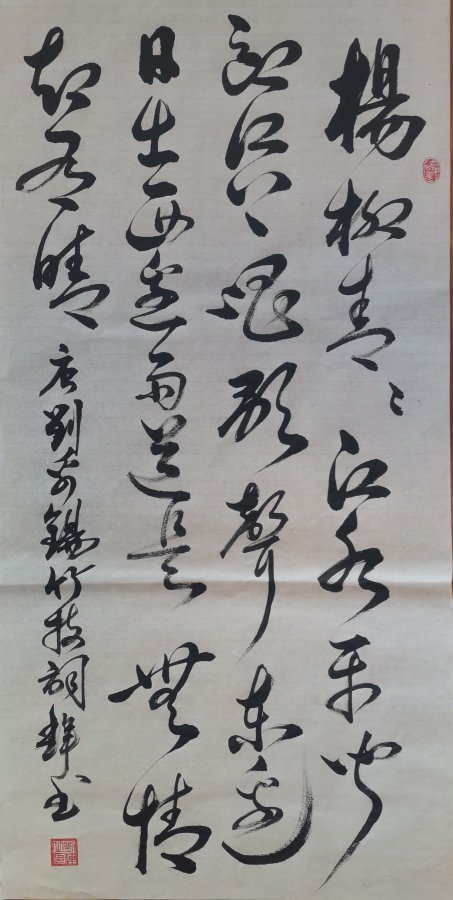 楊柳青〻江水平聞
郎江上唱歌聲東邊
日出西邊雨道是無情
却有晴 唐劉禹錫竹枝詞 書